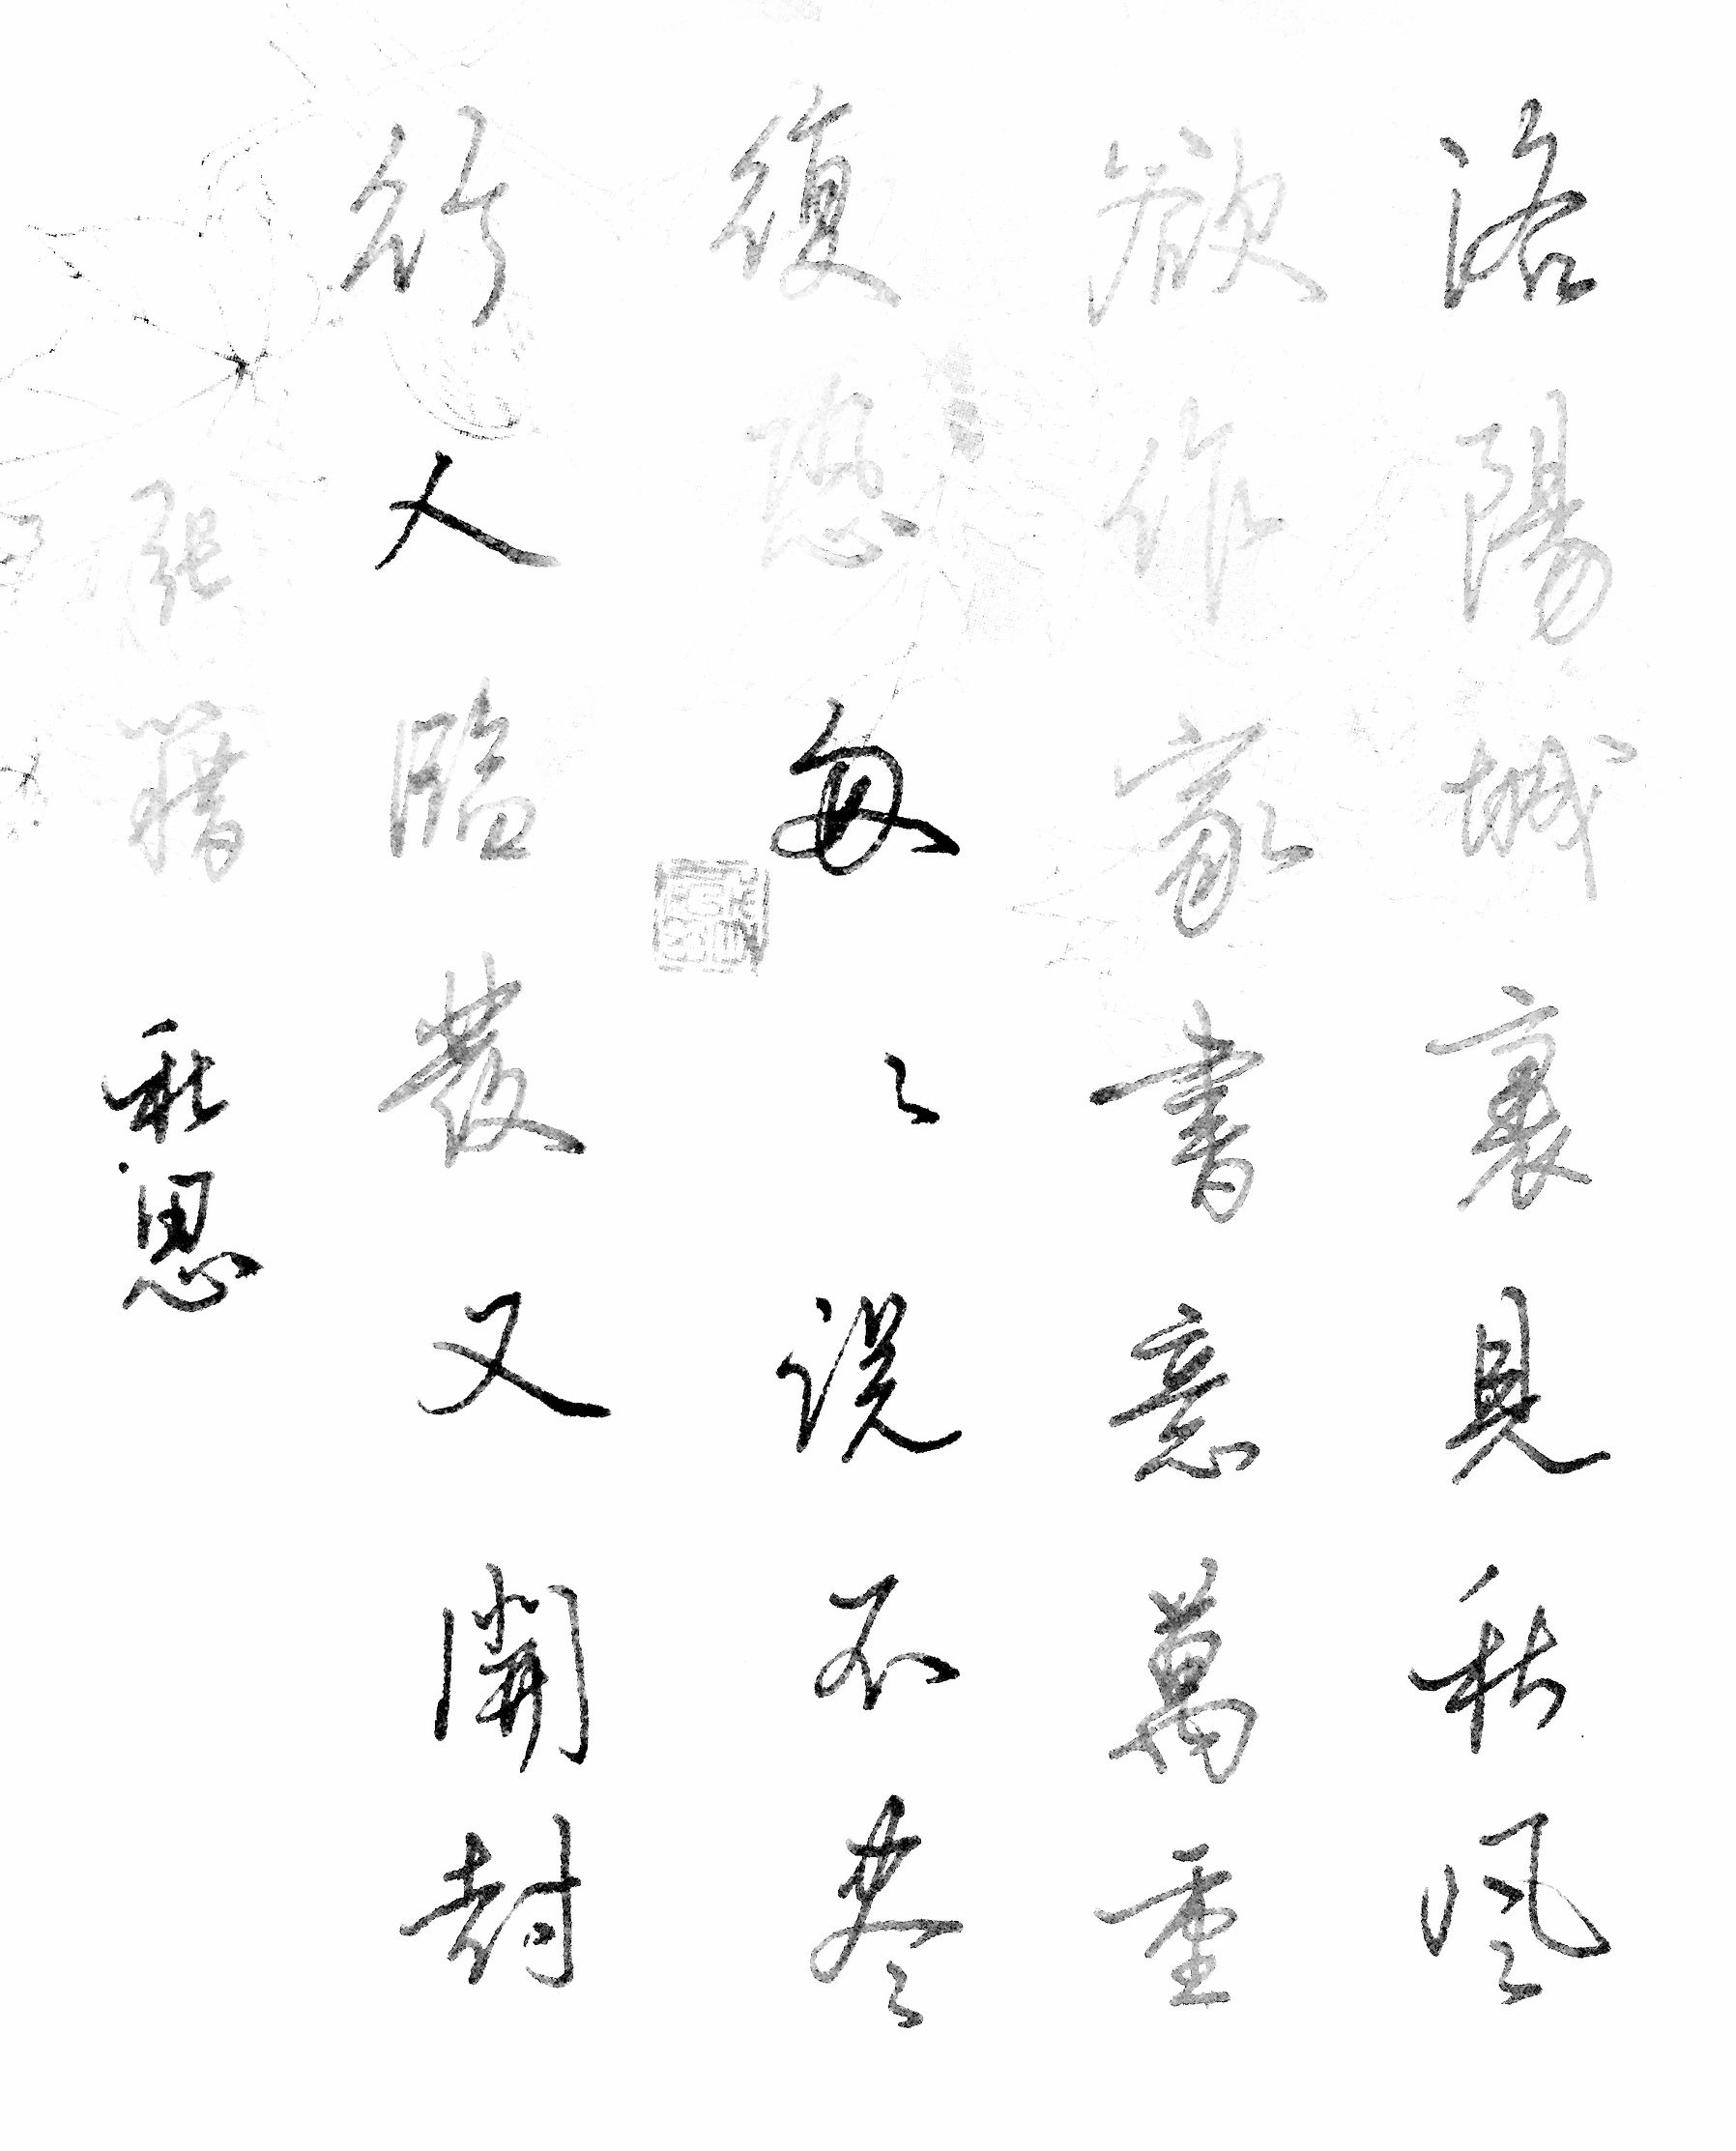 洛陽城裏見秋風
欲作家書意萬重
復恐匆〻説不尽
行人臨發又開封
張籍 秋思